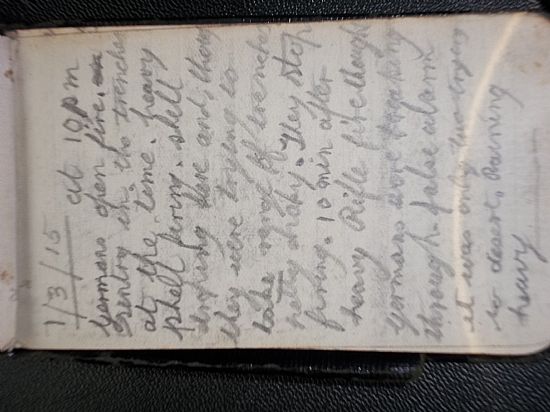 1/3/15 at 10 pm
Germans open fire.
sentry in the trenches
at the time. heavy
shell firing. shell
dropping here and there
they were trying to
take range of trenche
shaky. They stop
firing. 10 min after
heavy Rifle fire though
Germans were breaking
through. false alarm
it was only two trying
to desert. Raining
heavy